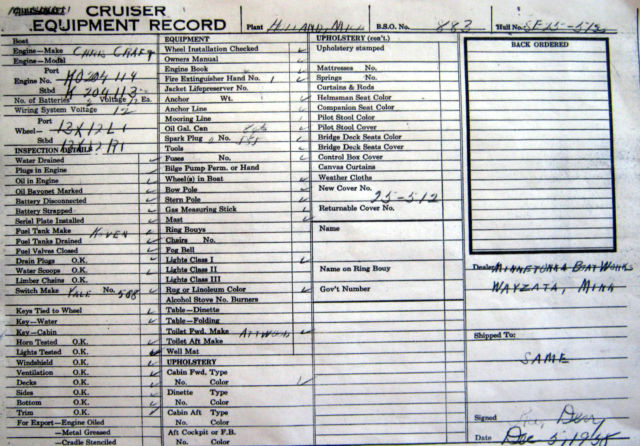 CRUISER
EQUIPMENT RECORD
Plant HOLLAND, MICH
B.S.O. No. 883
Hull No.
Boat
Engine—Make CHRIS CRAFT
Engine—Model
Port
Engine No.
Stbd
No. of Batteries Voltage Ea.
Wiring System Voltage 12
Port
Wheel—
Stbd
INSPECTION DETAILS
Water Drained
Plugs in Engine
Oil in Engine
Oil Bayonet Marked
Battery Disconnected
Battery Strapped
Serial Plate Installed
Fuel Tank Make
Fuel Tanks Drained
Fuel Valves Closed
Drain Plugs O.K.
Water Scoops O.K.
Limber Chains O.K.
Switch Make YALE No. 508
Keys Tied to Wheel
Key—Water
Key—Cabin
Horn Tested O.K.
Lights Tested O.K.
Windshield O.K.
Ventilation O.K.
Decks O.K.
Sides O.K.
Bottom O.K.
Trim O.K.
For Export—Engine Oiled
—Metal Greased
—Cradle Stenciled
EQUIPMENT
Wheel Installation Checked
Owners Manual
Engine Book
Fire Extinguisher Hand No. 1
Jacket Lifepreserver No.
Anchor Wt.
Anchor Line
Mooring Line
Oil Gal. Can
Spark Plug No.
Tools
Fuses No.
Bilge Pump Perm. or Hand
Wheel(s) in Boat
Bow Pole
Stern Pole
Gas Measuring Stick
Mast
Ring Bouys
Chairs No.
Fog Bell
Lights Class I
Lights Class II
Lights Class III
Rug or Linoleum Color
Alcohol Stove No. Burners
Table—Dinette
Table—Folding
Toilet Fwd. Make
Toilet Aft Make
Well Mat
UPHOLSTERY
Cabin Fwd. Type
No. Color
Dinette Type
No. Color
Cabin Aft Type
No. Color
Aft Cockpit or F.B.
No. Color
UPHOLSTERY (con't.)
Upholstery stamped
Mattresses No.
Springs No.
Curtains & Rods
Helmsman Seat Color
Companion Seat Color
Pilot Stool Color
Pilot Stool Cover
Bridge Deck Seats Color
Bridge Deck Seats Cover
Control Box Cover
Canvas Curtains
Weather Cloths
New Cover No.
25-512
Returnable Cover No.
Name
Name on Ring Bouy
Gov't Number
BACK ORDERED
Dealer MINNETONKA BOAT WORKS
WAYZATA, MINN
Shipped To:
SAME
Signed
Date Dec